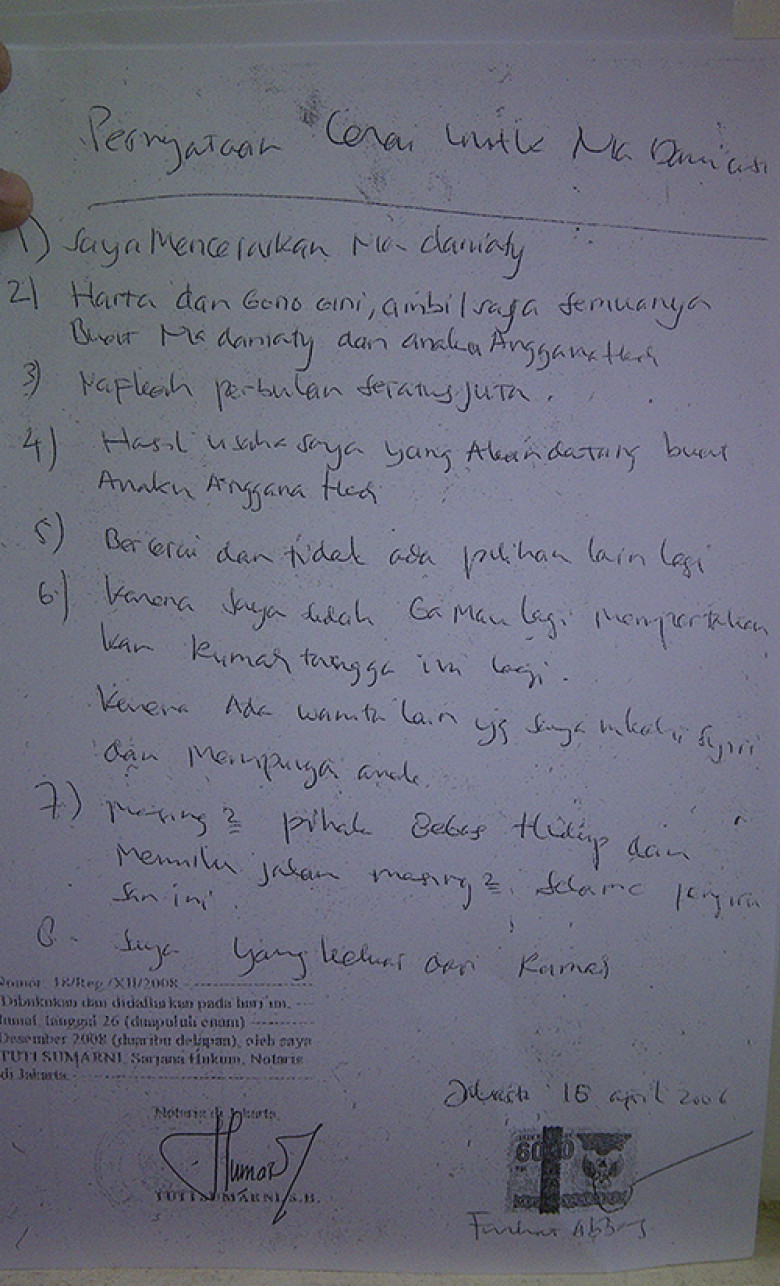 Pernyataan Cerai untuk Nia Daniati
1) Saya Menceraikan Nia daniaty
2) Harta dan Gono Gini, ambil saja semuanya
Buat Nia daniaty dan anaku Anggana Hadi
3) Nafkah perbulan seratus JUTA.
4) Hasil usaha saya yang Akan datang buat
Anaku Anggana Hadi
5) Bercerai dan tidak ada pilihan lain lagi
6) Karena saya sudah Ga Mau lagi mempertahan
kan Rumah tangga ini lagi.
Karena Ada wanita lain yg saya nikahi Syiri
dan Mempunyai anak.
7) Masing 2 pihak Bebas Hidup dan
Memilih jalan masing 2. Selama
8. Saya yang keluar dari Rumah
Nomor: 18/Reg./XII/2008
Dibukukan dan didaftarkan pada hari ini,
Jumat, tanggal 26 (duapuluh enam)
Desember 2008 (duaribu delapan), oleh saya
TUTI SUMARNI, Sarjana Hukum, Notaris
di Jakarta.
Notaris di Jakarta,
TUTI SUMARNI, S.H.
Jakarta 16 april 2006
6000
Farhat Abbas